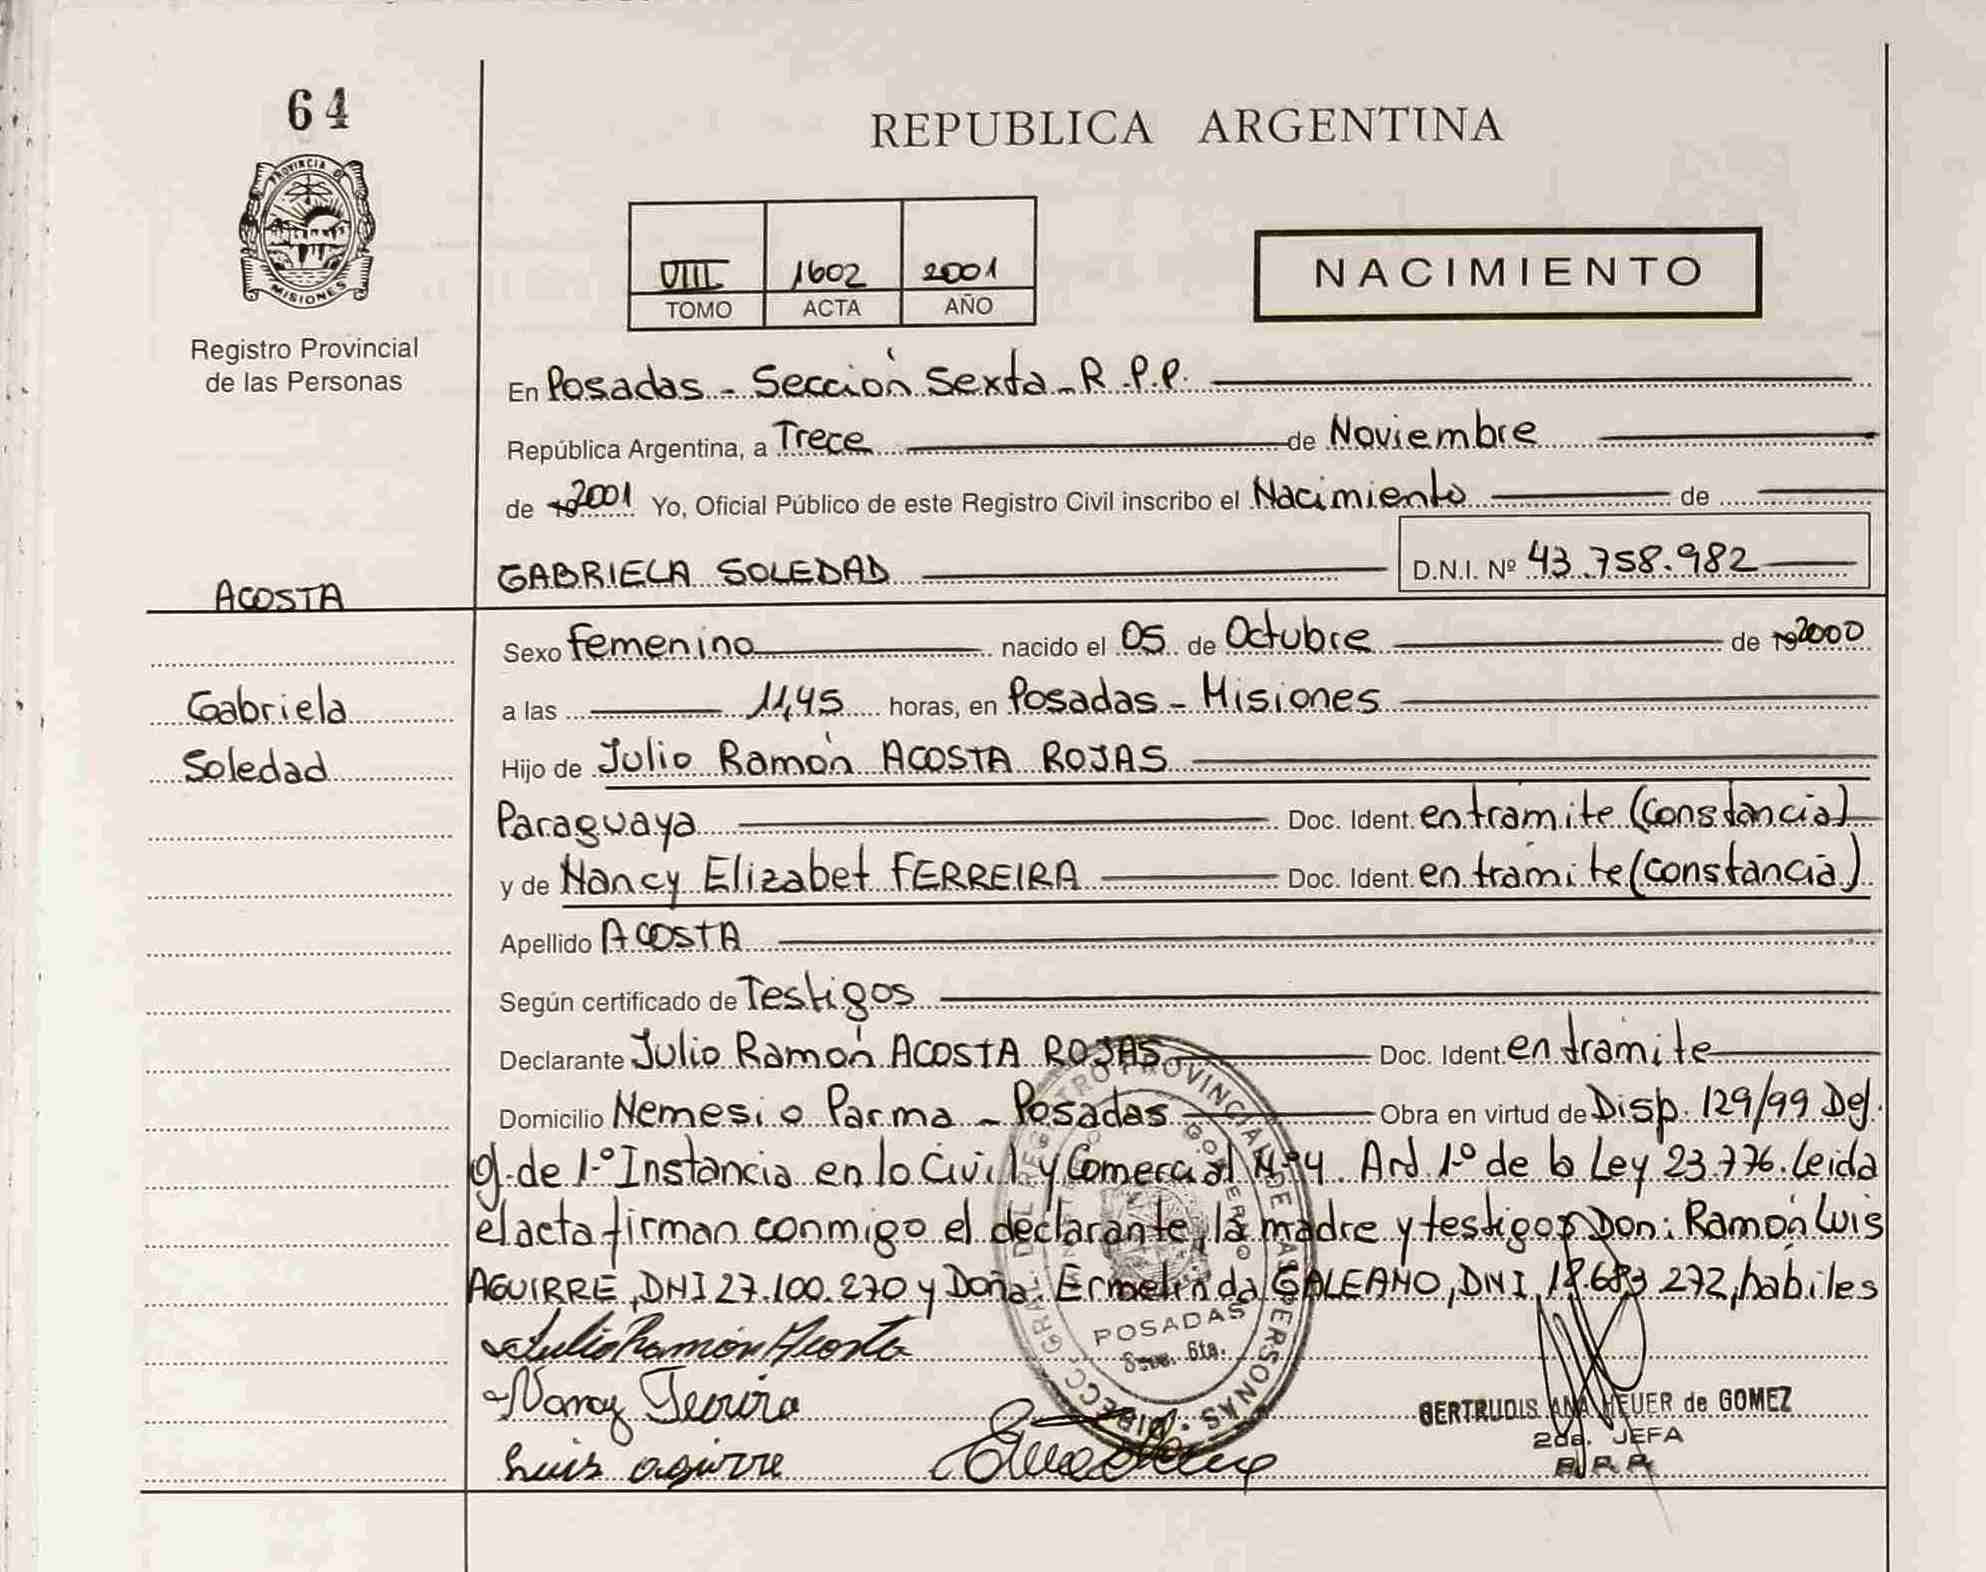 64
PROVINCIA DE
MISIONES
Registro Provincial
de las Personas
REPUBLICA ARGENTINA
VIII 1602 2001
TOMO ACTA AÑO
NACIMIENTO
En Posadas - Sección Sexta - R.P.P.
República Argentina, a Trece de Noviembre
de 19 2001 Yo, Oficial Público de este Registro Civil inscribo el Nacimiento de
GABRIELA SOLEDAD D.N.I. Nº 43.758.982
ACOSTA
Gabriela
Soledad
Sexo femenino nacido el 05 de Octubre de 19 2000
a las 11,45 horas, en Posadas - Misiones
Hijo de Julio Ramón ACOSTA ROJAS
Paraguaya Doc. Ident. en tramite (Constancia)
y de Nancy Elizabet FERREIRA Doc. Ident. en tramite (constancia)
Apellido ACOSTA
Según certificado de Testigos
Declarante Julio Ramón ACOSTA ROJAS Doc. Ident. en tramite
Domicilio Nemesio Parma - Posadas Obra en virtud de Disp. 129/99 Del
de 1º Instancia en lo Civil y Comercial Nº4 Art. 1º de la Ley 23.776. Leida
el acta firman conmigo el declarante, la madre y testigos Don: Ramón Luis
AGUIRRE, DNI 27.100.270 y Doña: Ermelinda GALEANO, DNI 18.683.272, habiles
Julio Ramón Acosta
Nancy Ferreira
Luis aguirre
DIRECC. GRAL. DEL REGISTRO PROVINCIAL DE LAS PERSONAS
GOBIERNO
POSADAS
Secc. 6ta.
GERTRUDIS ANA HEUER de GOMEZ
2da. JEFA
R.P.P.